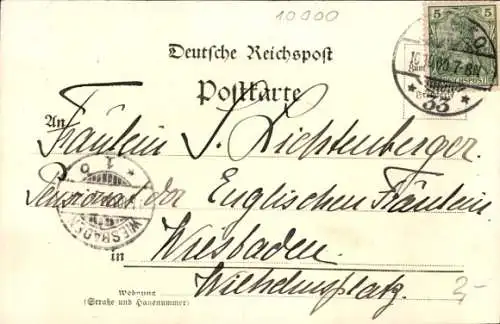 10000
5 5
Deutsche Reichspost
Postkarte
An
Fräulein S. Lichtenberger.
Pensionat der Englischen Fräulein
in Wiesbaden.
Wilhelmsplatz.
Wohnung
(Straße und Hausnummer)
2,-
* 33 *
* 1 6
WIESBADEN